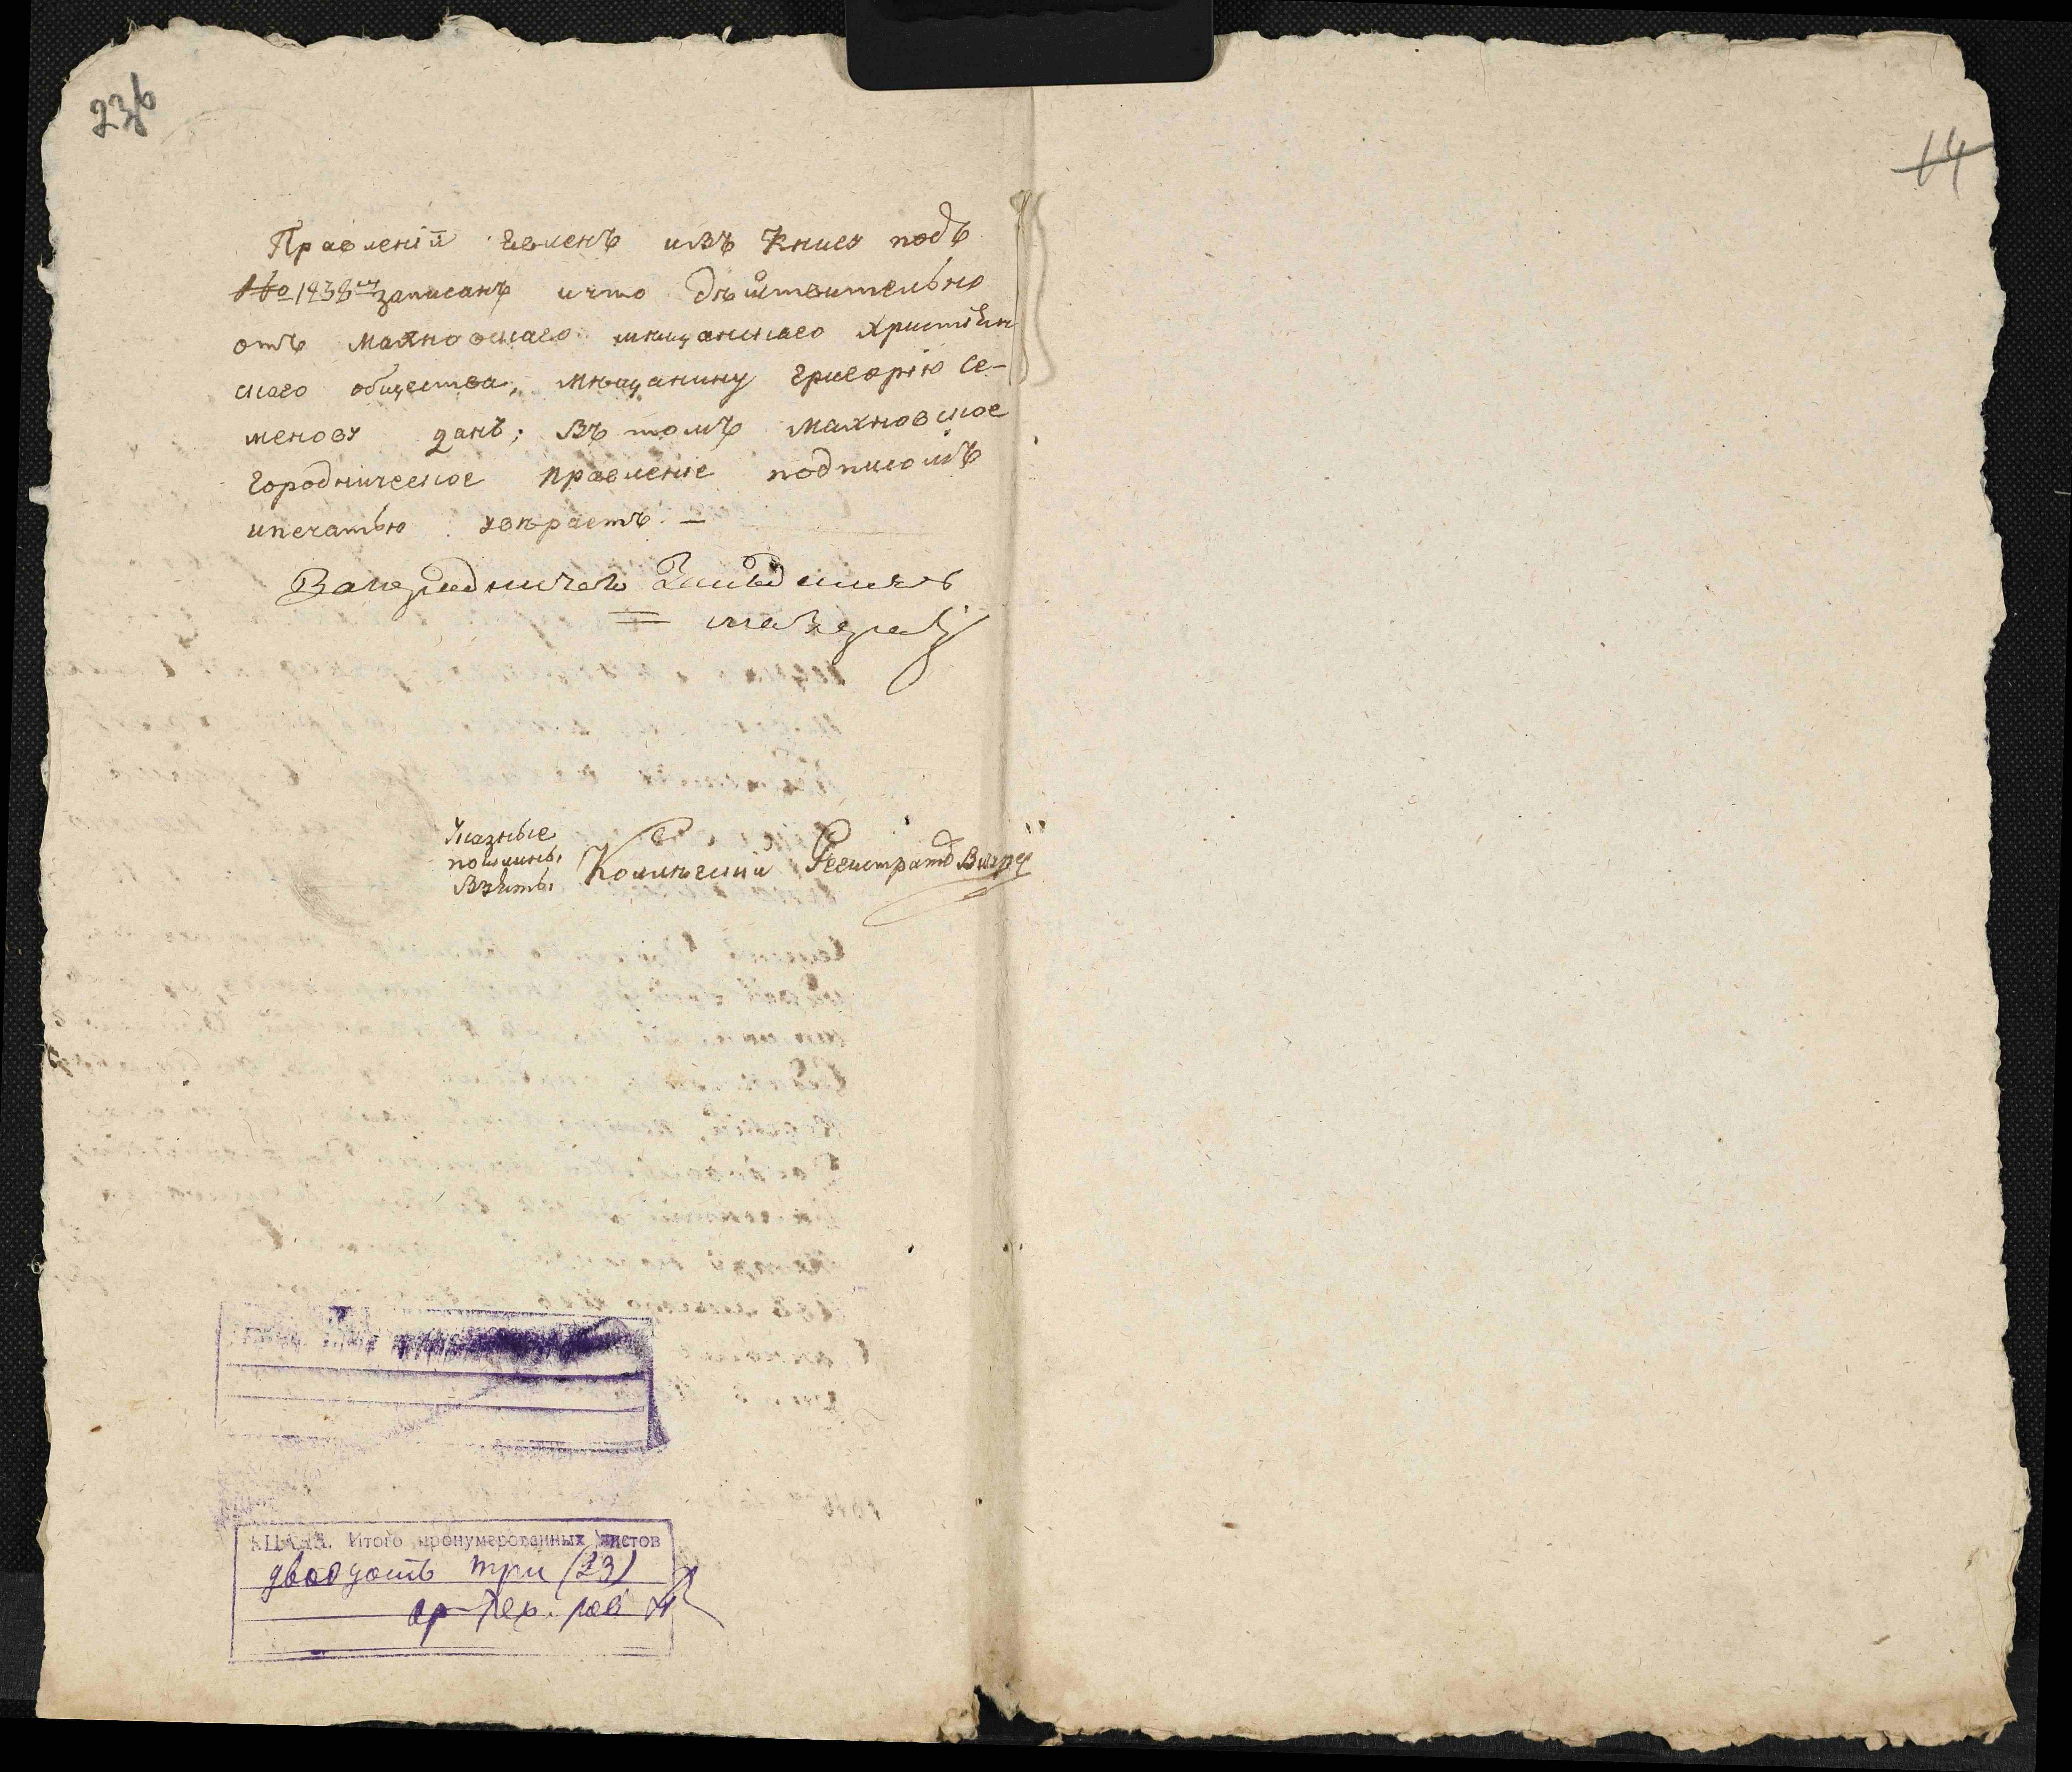 23б
14
Правленій явленъ изъ Книгѣ подъ
№ 1438мъ записанъ и что дѣйствительно
отъ Махновскаго мѣщанскаго христіян
скаго общества, мѣщанину Григорію Се-
менову данъ; въ томъ Махновское
Городническое Правленіе подписомъ
и печатью увѣряетъ. —
За городничего
Указные
пошлины
взяты
Колежскій Регистраторъ
Итого пронумерованных листов
двадцать три (23)